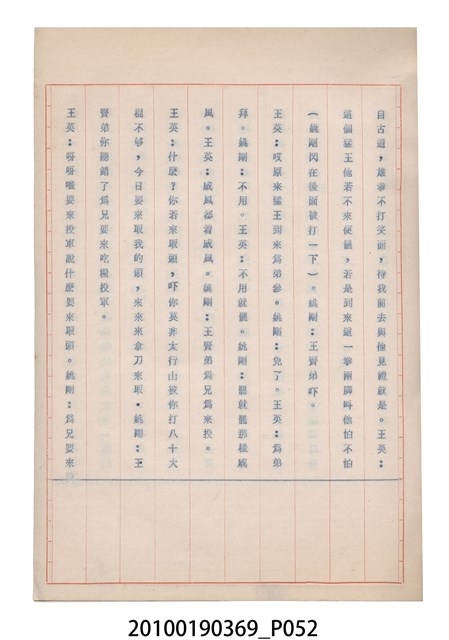 自古道，雄拳不打笑面，待我願去與他見禮就是。王英：
這個猛王他若不來便罷，若是到來這一拳兩脚叫他怕不怕
（姚剛閃在後面被打一下）。姚剛：王賢弟吓。
王英：哎原來猛王到來爲弟參。姚剛：免了。王英：爲弟
拜。姚剛：不用。王英：不用就罷。姚剛：罷就罷那樣威
風。王英：威風都着威風。姚剛：王賢弟爲兄爲來投。
王英：什麼？你若來取頭，吓你莫非太行山被你打八十大
棍不够，今日要來取我的頭，來來來拿刀來取。姚剛：王
賢弟你聽錯了爲兄要來吃糧投軍。
王英：呀呀哦要來投軍說什麼要來取頭。姚剛：爲兄要來
20100190369_P052